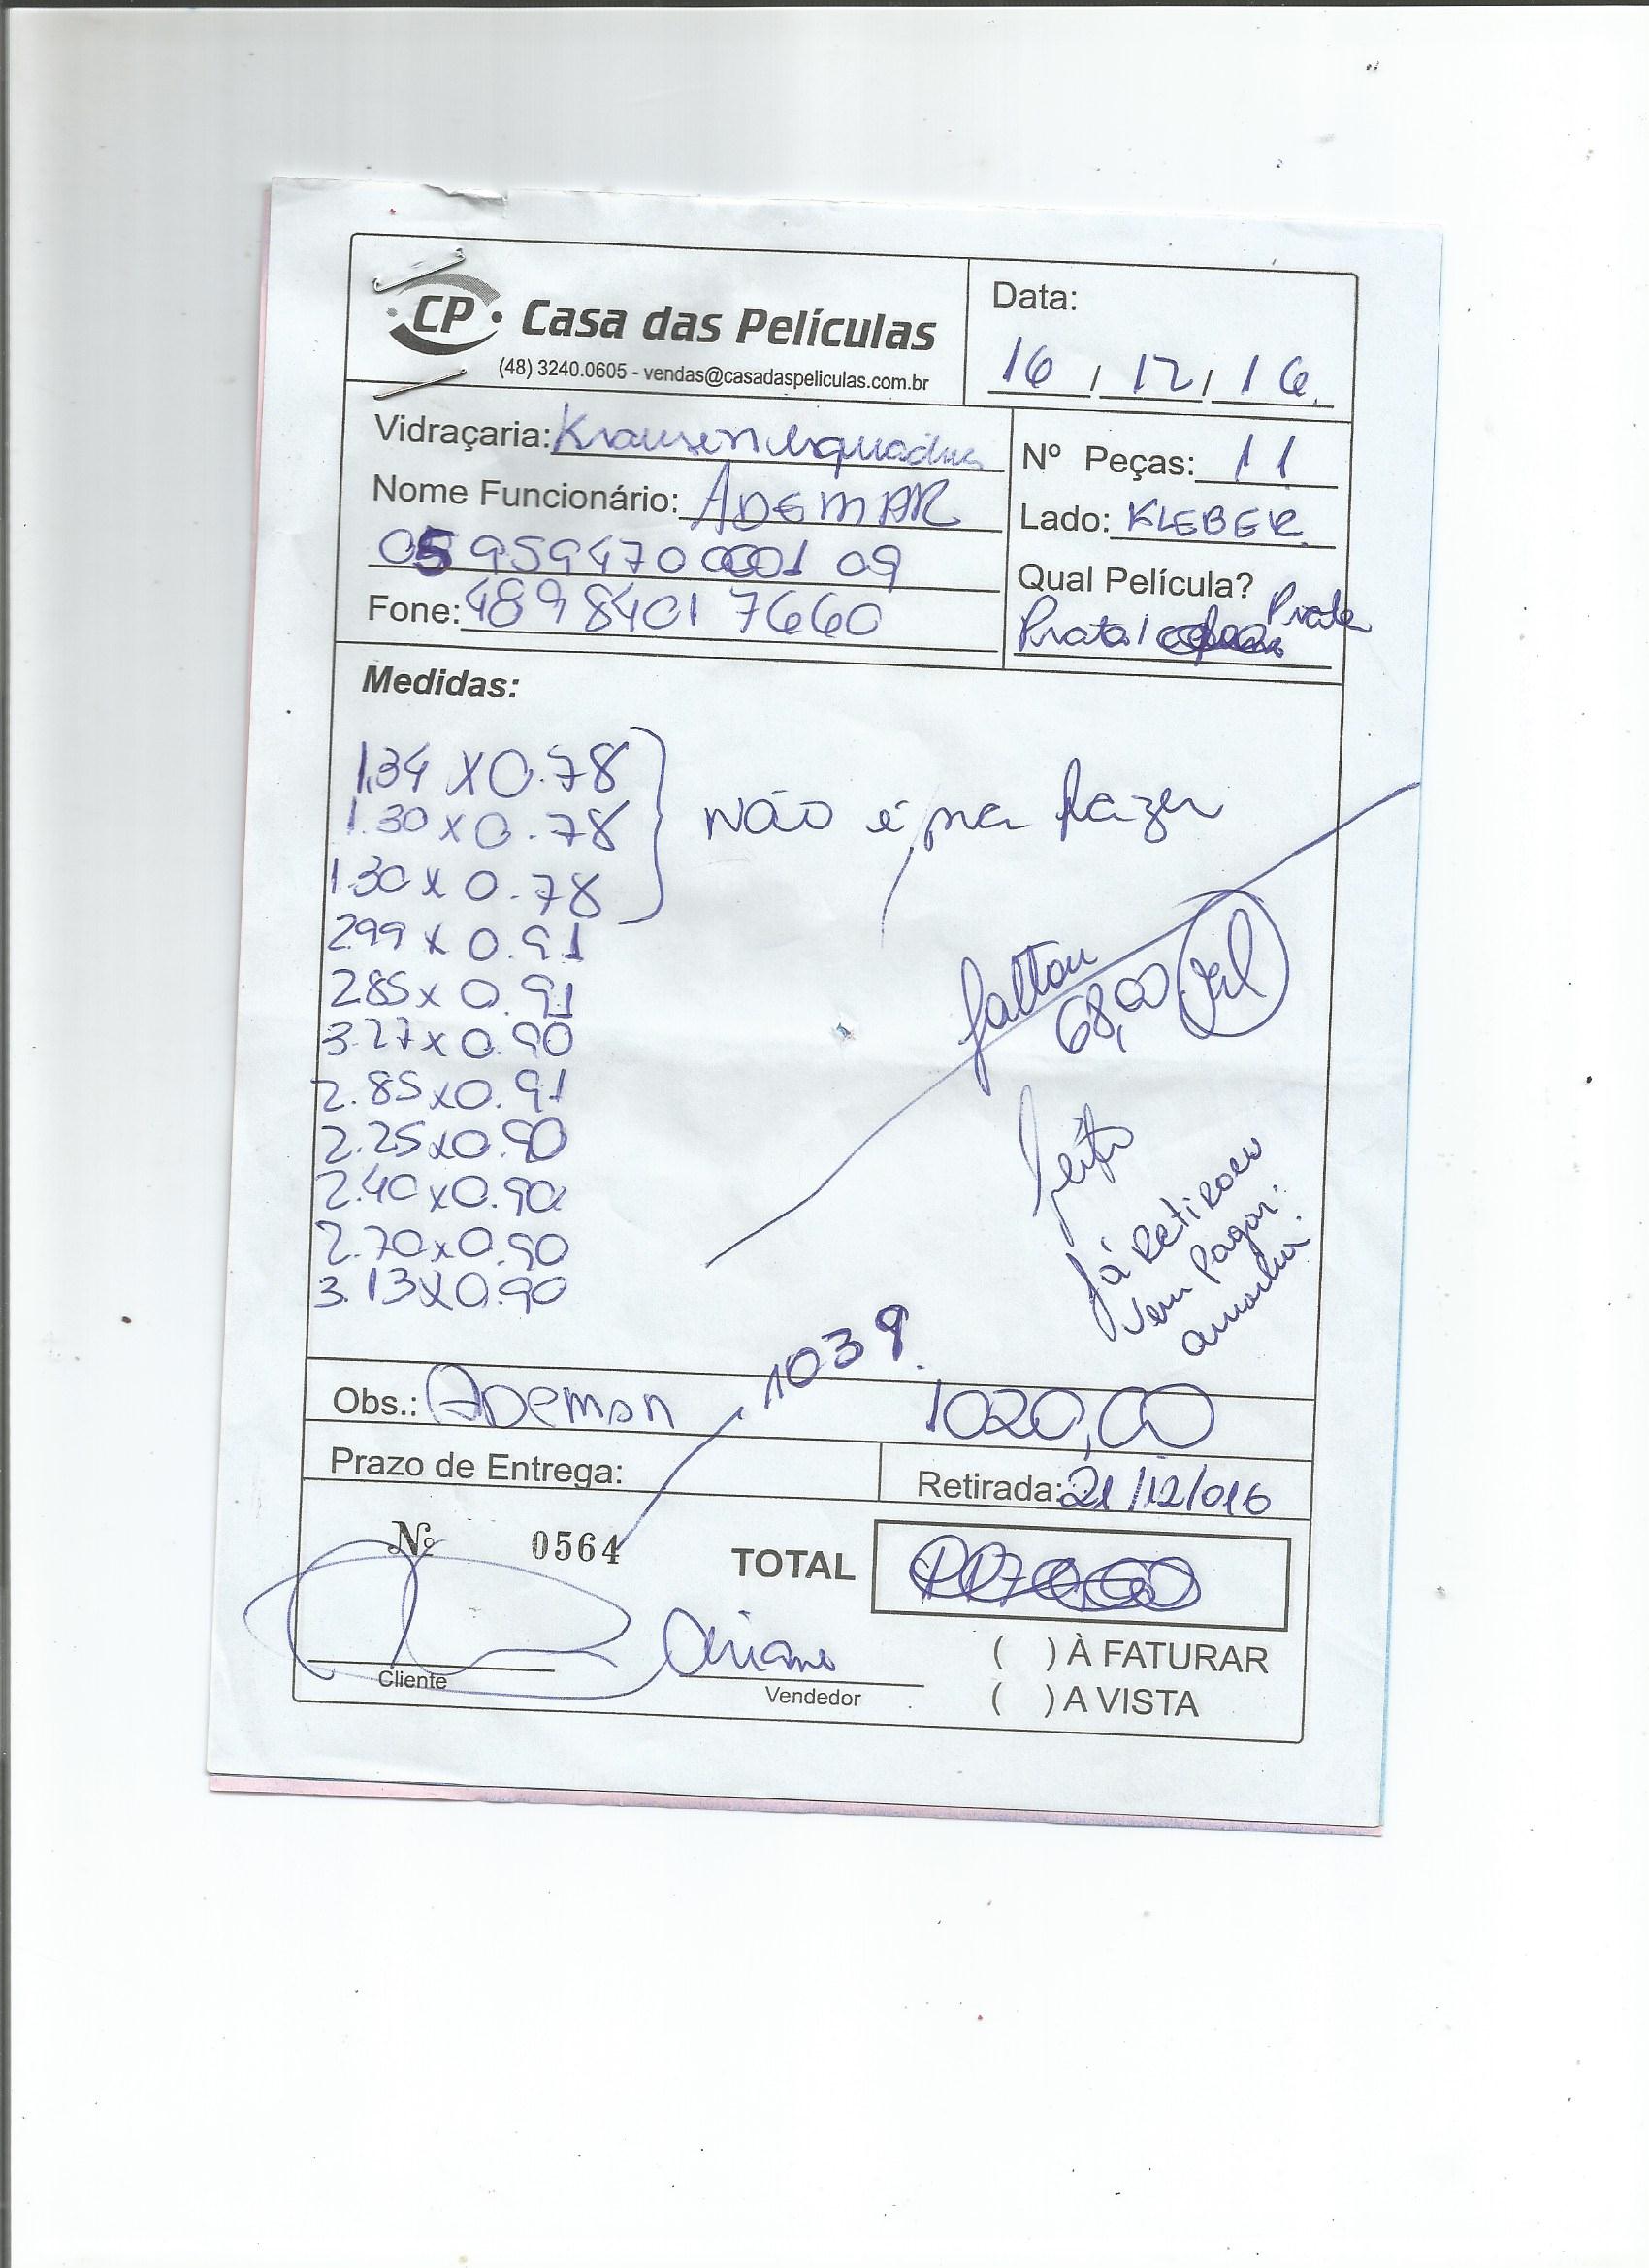 CP Casa das Películas
(48) 3240.0605 - vendas@casadaspeliculas.com.br
Data:
16 / 12 / 16
Vidraçaria: Krausen esquadrias
Nº Peças: 11
Nome Funcionário: ADEMAR
Lado: KLEBER
05 959470 0001 09
Qual Película? Prata
Prata /
Fone: 48 98401 7660
Medidas:
1.34 x 0.78
1.30 x 0.78
1.30 x 0.78
Não é pra fazer
2.99 x 0.91
2.85 x 0.91
3.27 x 0.90
2.85 x 0.91
2.25 x 0.90
2.40 x 0.90
2.70 x 0.90
3.13 x 0.90
faltou
68,00
feito
Já Retirou
Vem Pagar
amanhã
1039
Obs.: Ademar
1020,00
Prazo de Entrega:
Retirada: 21/12/016
Nº 0564
TOTAL
Cliente
Ariane
Vendedor
( ) À FATURAR
( ) A VISTA